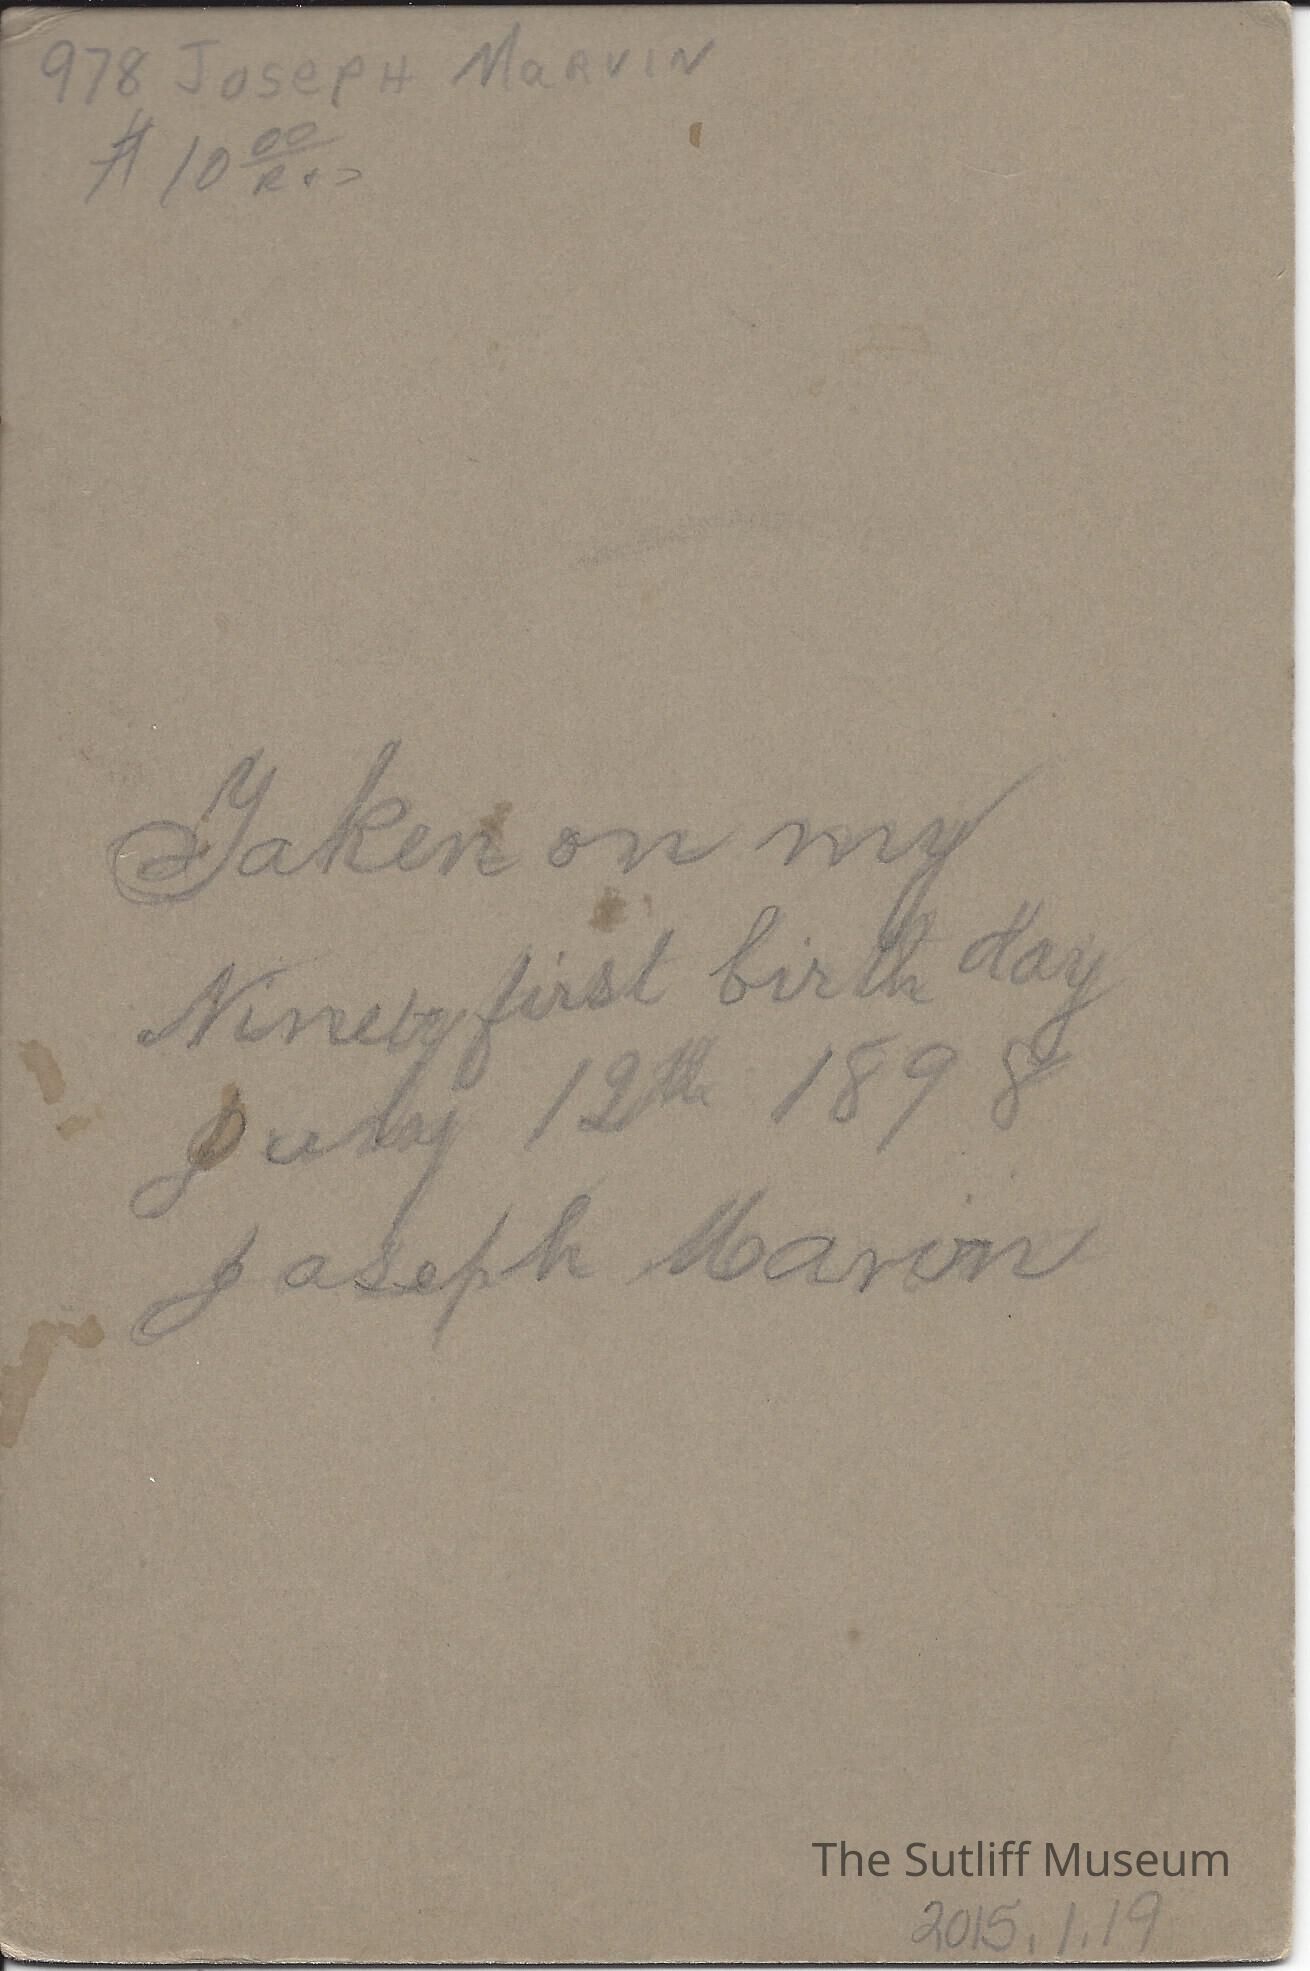 978 Joseph Marvin
$10 00
Taken on my
Ninety first birth day
July 12th 1898
Joseph Marvin
The Sutliff Museum
2015.1.19